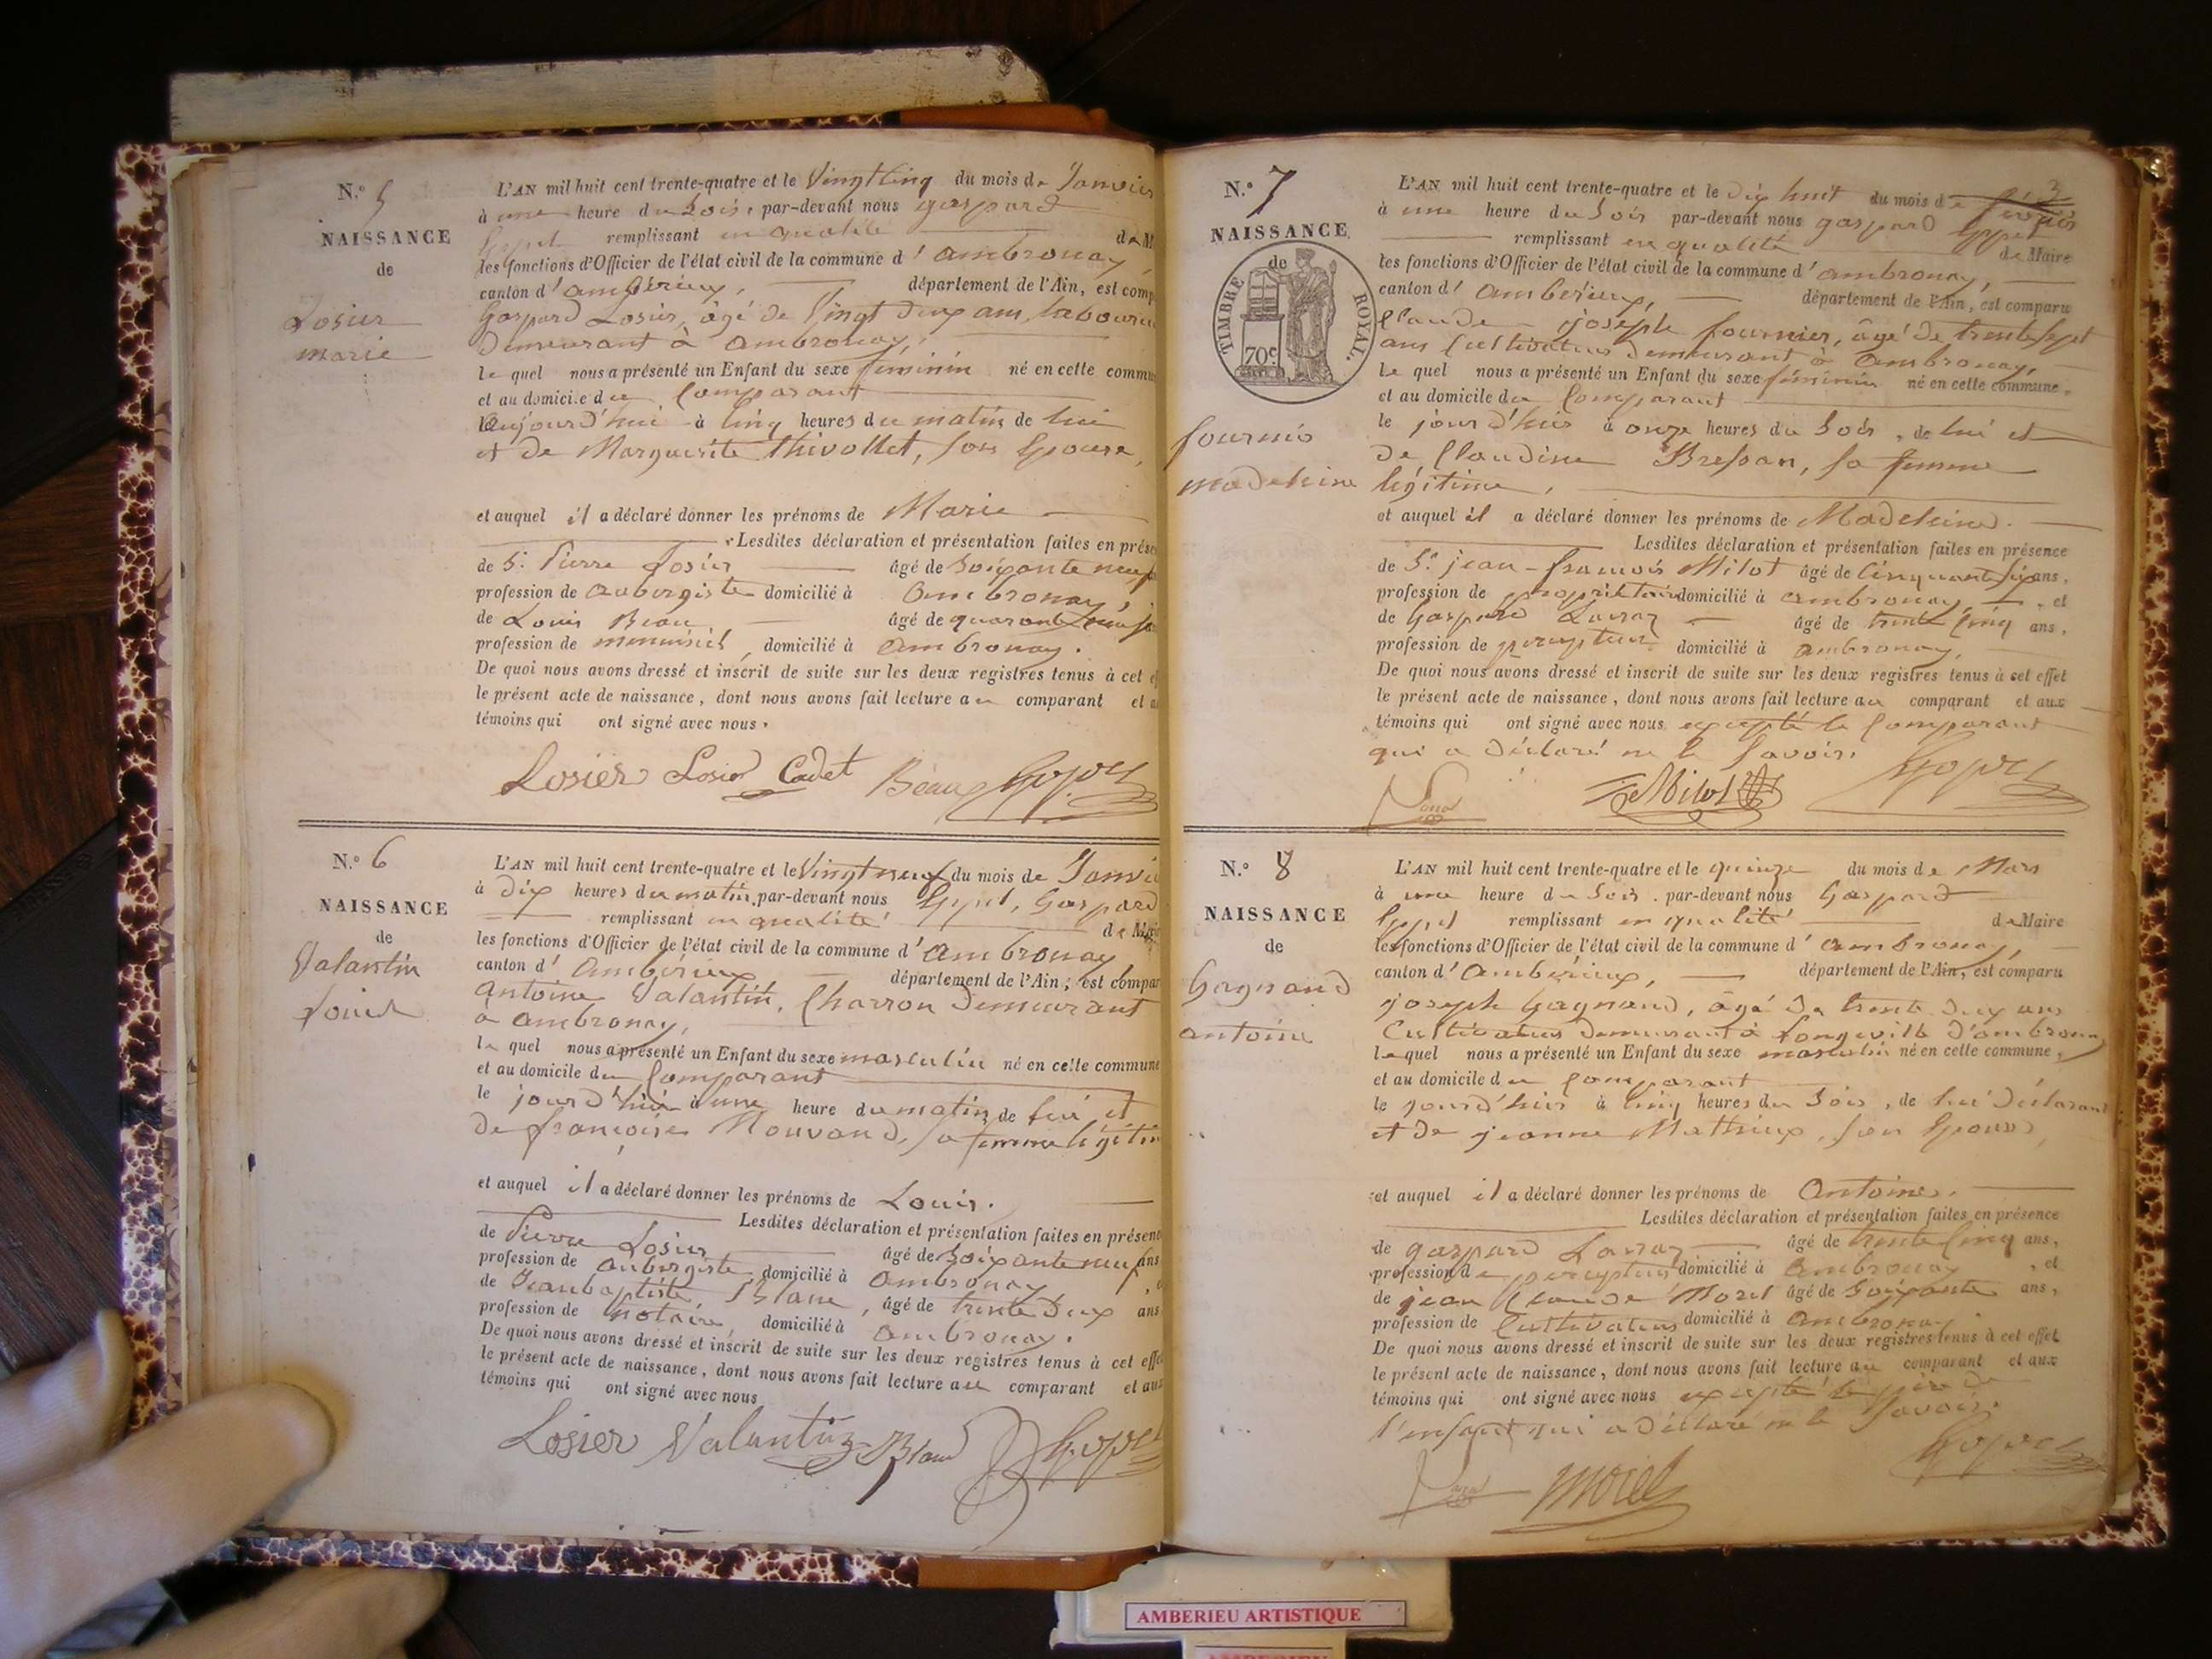 N.º 5
NAISSANCE
de
Losier
marie
L'AN mil huit cent trente-quatre et le Vingt Cinq du mois de Janvier
à une heure du Soir, par-devant nous gaspard
remplissant en qualité de M
les fonctions d'Officier de l'état civil de la commune d'ambronay,
canton d'ambérieux, département de l'Ain, est comp
Gaspard Losier, âgé de Vingt deux ans, laboureur
demeurant à ambronay,
le quel nous a présenté un Enfant du sexe féminin né en cette commu
et au domicile du Comparant
aujourd'hui à Cinq heures du matin de lui
et de Marguerite thivollet, son Epouse,
et auquel il a déclaré donner les prénoms de Marie
Lesdites déclaration et présentation faites en prése
de Sr. Pierre Losier âgé de Soixante neuf
profession de aubergiste domicilié à Ambronay,
de Louis Beau âgé de quarante
profession de menuisier, domicilié à Ambronay.
De quoi nous avons dressé et inscrit de suite sur les deux registres tenus à cet e
le présent acte de naissance, dont nous avons fait lecture au comparant et a
témoins qui ont signé avec nous.
Losier Losier Cadet Beau
N.º 6
NAISSANCE
de
Valantin
Louis
L'AN mil huit cent trente-quatre et le Vingt neuf du mois de Janvi
à dix heures du matin, par-devant nous Gaspard
remplissant en qualité de Mai
les fonctions d'Officier de l'état civil de la commune d'Ambronay
canton d'Ambérieux département de l'Ain, est compar
antoine Valantin, Charron demeurant
a ambronay,
le quel nous a présenté un Enfant du sexe masculin né en cette commune
et au domicile du Comparant
le jourd'hui à une heure du matin de lui et
de françoise Mouvand, sa femme légitim
et auquel il a déclaré donner les prénoms de Louis.
Lesdites déclaration et présentation faites en présen
de Pierre Losier âgé de Soixante neuf ans
profession de aubergiste, domicilié à Ambronay,
de Jean baptiste Blanc, âgé de trente deux ans
profession de notaire, domicilié à Ambronay.
De quoi nous avons dressé et inscrit de suite sur les deux registres tenus à cet effe
le présent acte de naissance, dont nous avons fait lecture au comparant et aux
témoins qui ont signé avec nous
Losier Valantin Blanc
3
N.º 7
NAISSANCE
de
TIMBRE ROYAL.
70c
fournier
madeleine
L'AN mil huit cent trente-quatre et le dix huit du mois de février
à une heure du Soir par-devant nous gaspard
remplissant en qualité de Maire
les fonctions d'Officier de l'état civil de la commune d'ambronay,
canton d'Ambérieux, département de l'Ain, est comparu
Claude joseph fournier, âgé de trente Sept
ans Cultivateur demeurant à Ambronay,
le quel nous a présenté un Enfant du sexe féminin né en cette commune,
et au domicile du Comparant
le jourd'hui à onze heures du Soir, de lui et
de Claudine Bressan, sa femme
légitime,
et auquel il a déclaré donner les prénoms de Madeleine.
Lesdites déclaration et présentation faites en présence
de Sr. jean-françois Milot âgé de Cinquante Six ans,
profession de propriétaire domicilié à ambronay, et
de Gaspard âgé de trente Cinq ans,
profession de percepteur domicilié à ambronay,
De quoi nous avons dressé et inscrit de suite sur les deux registres tenus à cet effet
le présent acte de naissance, dont nous avons fait lecture au comparant et aux
témoins qui ont signé avec nous excepté le Comparant
qui a déclaré ne le Savoir.
Milot
N.º 8
NAISSANCE
de
Gagnand
antoine
L'AN mil huit cent trente-quatre et le quinze du mois de Mars
à une heure du Soir. par-devant nous Gaspard
remplissant en qualité de Maire
les fonctions d'Officier de l'état civil de la commune d'ambronay,
canton d'Ambérieux, département de l'Ain, est comparu
joseph Gagnand, âgé de trente deux ans
Cultivateur demeurant à Longeville d'ambronay
le quel nous a présenté un Enfant du sexe masculin né en cette commune,
et au domicile du Comparant
le jourd'hui à Cinq heures du Soir, de lui déclarant
et de jeanne Mathieux, son Epouse,
et auquel il a déclaré donner les prénoms de Antoine.
Lesdites déclaration et présentation faites en présence
de gaspard âgé de trente Cinq ans,
profession de percepteur domicilié à Ambronay, et
de jean Claude Morel âgé de Soixante ans,
profession de Cultivateur domicilié à Ambronay
De quoi nous avons dressé et inscrit de suite sur les deux registres tenus à cet effet
le présent acte de naissance, dont nous avons fait lecture au comparant et aux
témoins qui ont signé avec nous excepté le père de
l'enfant qui a déclaré ne le Savoir.
morel
AMBERIEU ARTISTIQUE